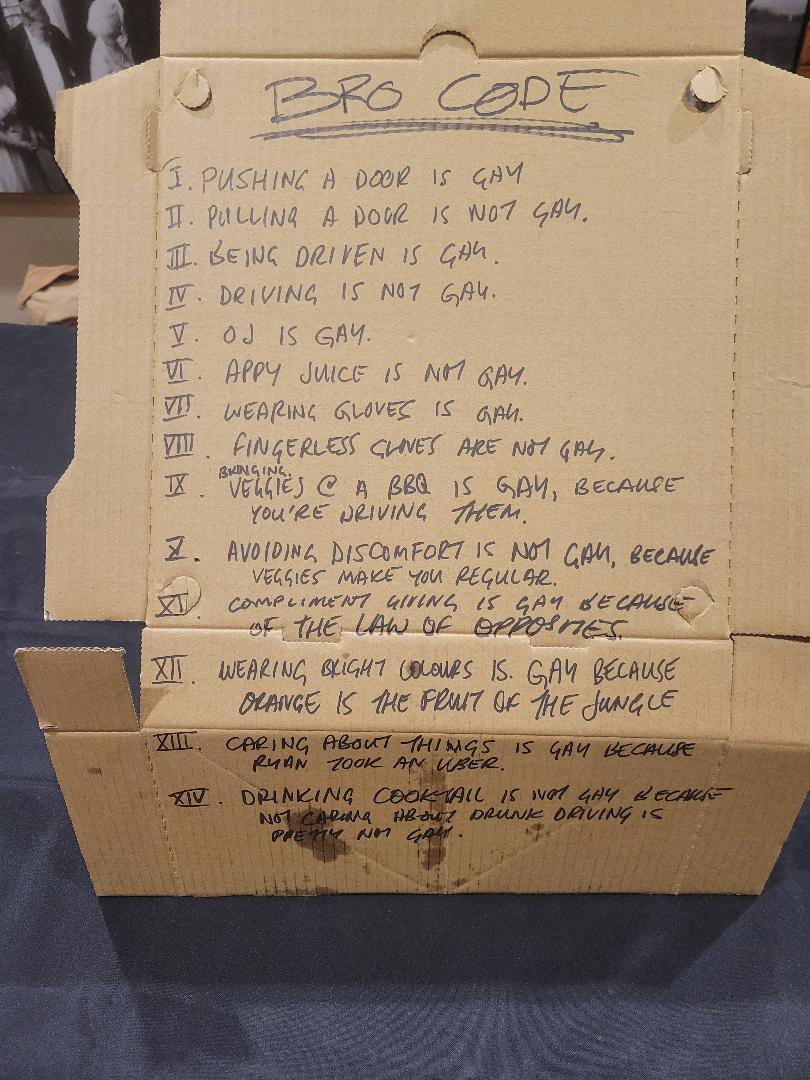 BRO CODE
I. PUSHING A DOOR IS GAY
II. PULLING A DOOR IS NOT GAY.
III. BEING DRIVEN IS GAY.
IV. DRIVING IS NOT GAY.
V. OJ IS GAY.
VI. APPY JUICE IS NOT GAY.
VII. WEARING GLOVES IS GAY.
VIII. FINGERLESS GLOVES ARE NOT GAY.
BRINGING
IX. VEGGIES @ A BBQ IS GAY, BECAUSE
YOU'RE DRIVING THEM.
X. AVOIDING DISCOMFORT IS NOT GAY, BECAUSE
VEGGIES MAKE YOU REGULAR.
XI. COMPLIMENT GIVING IS GAY BECAUSE
OF THE LAW OF OPPOSITES.
XII. WEARING BRIGHT COLOURS IS GAY BECAUSE
ORANGE IS THE FRUIT OF THE JUNGLE
XIII. CARING ABOUT THINGS IS GAY BECAUSE
RYAN TOOK AN UBER.
XIV. DRINKING COCKTAIL IS NOT GAY BECAUSE
NOT CARING ABOUT DRUNK DRIVING IS
PRETTY NOT GAY.